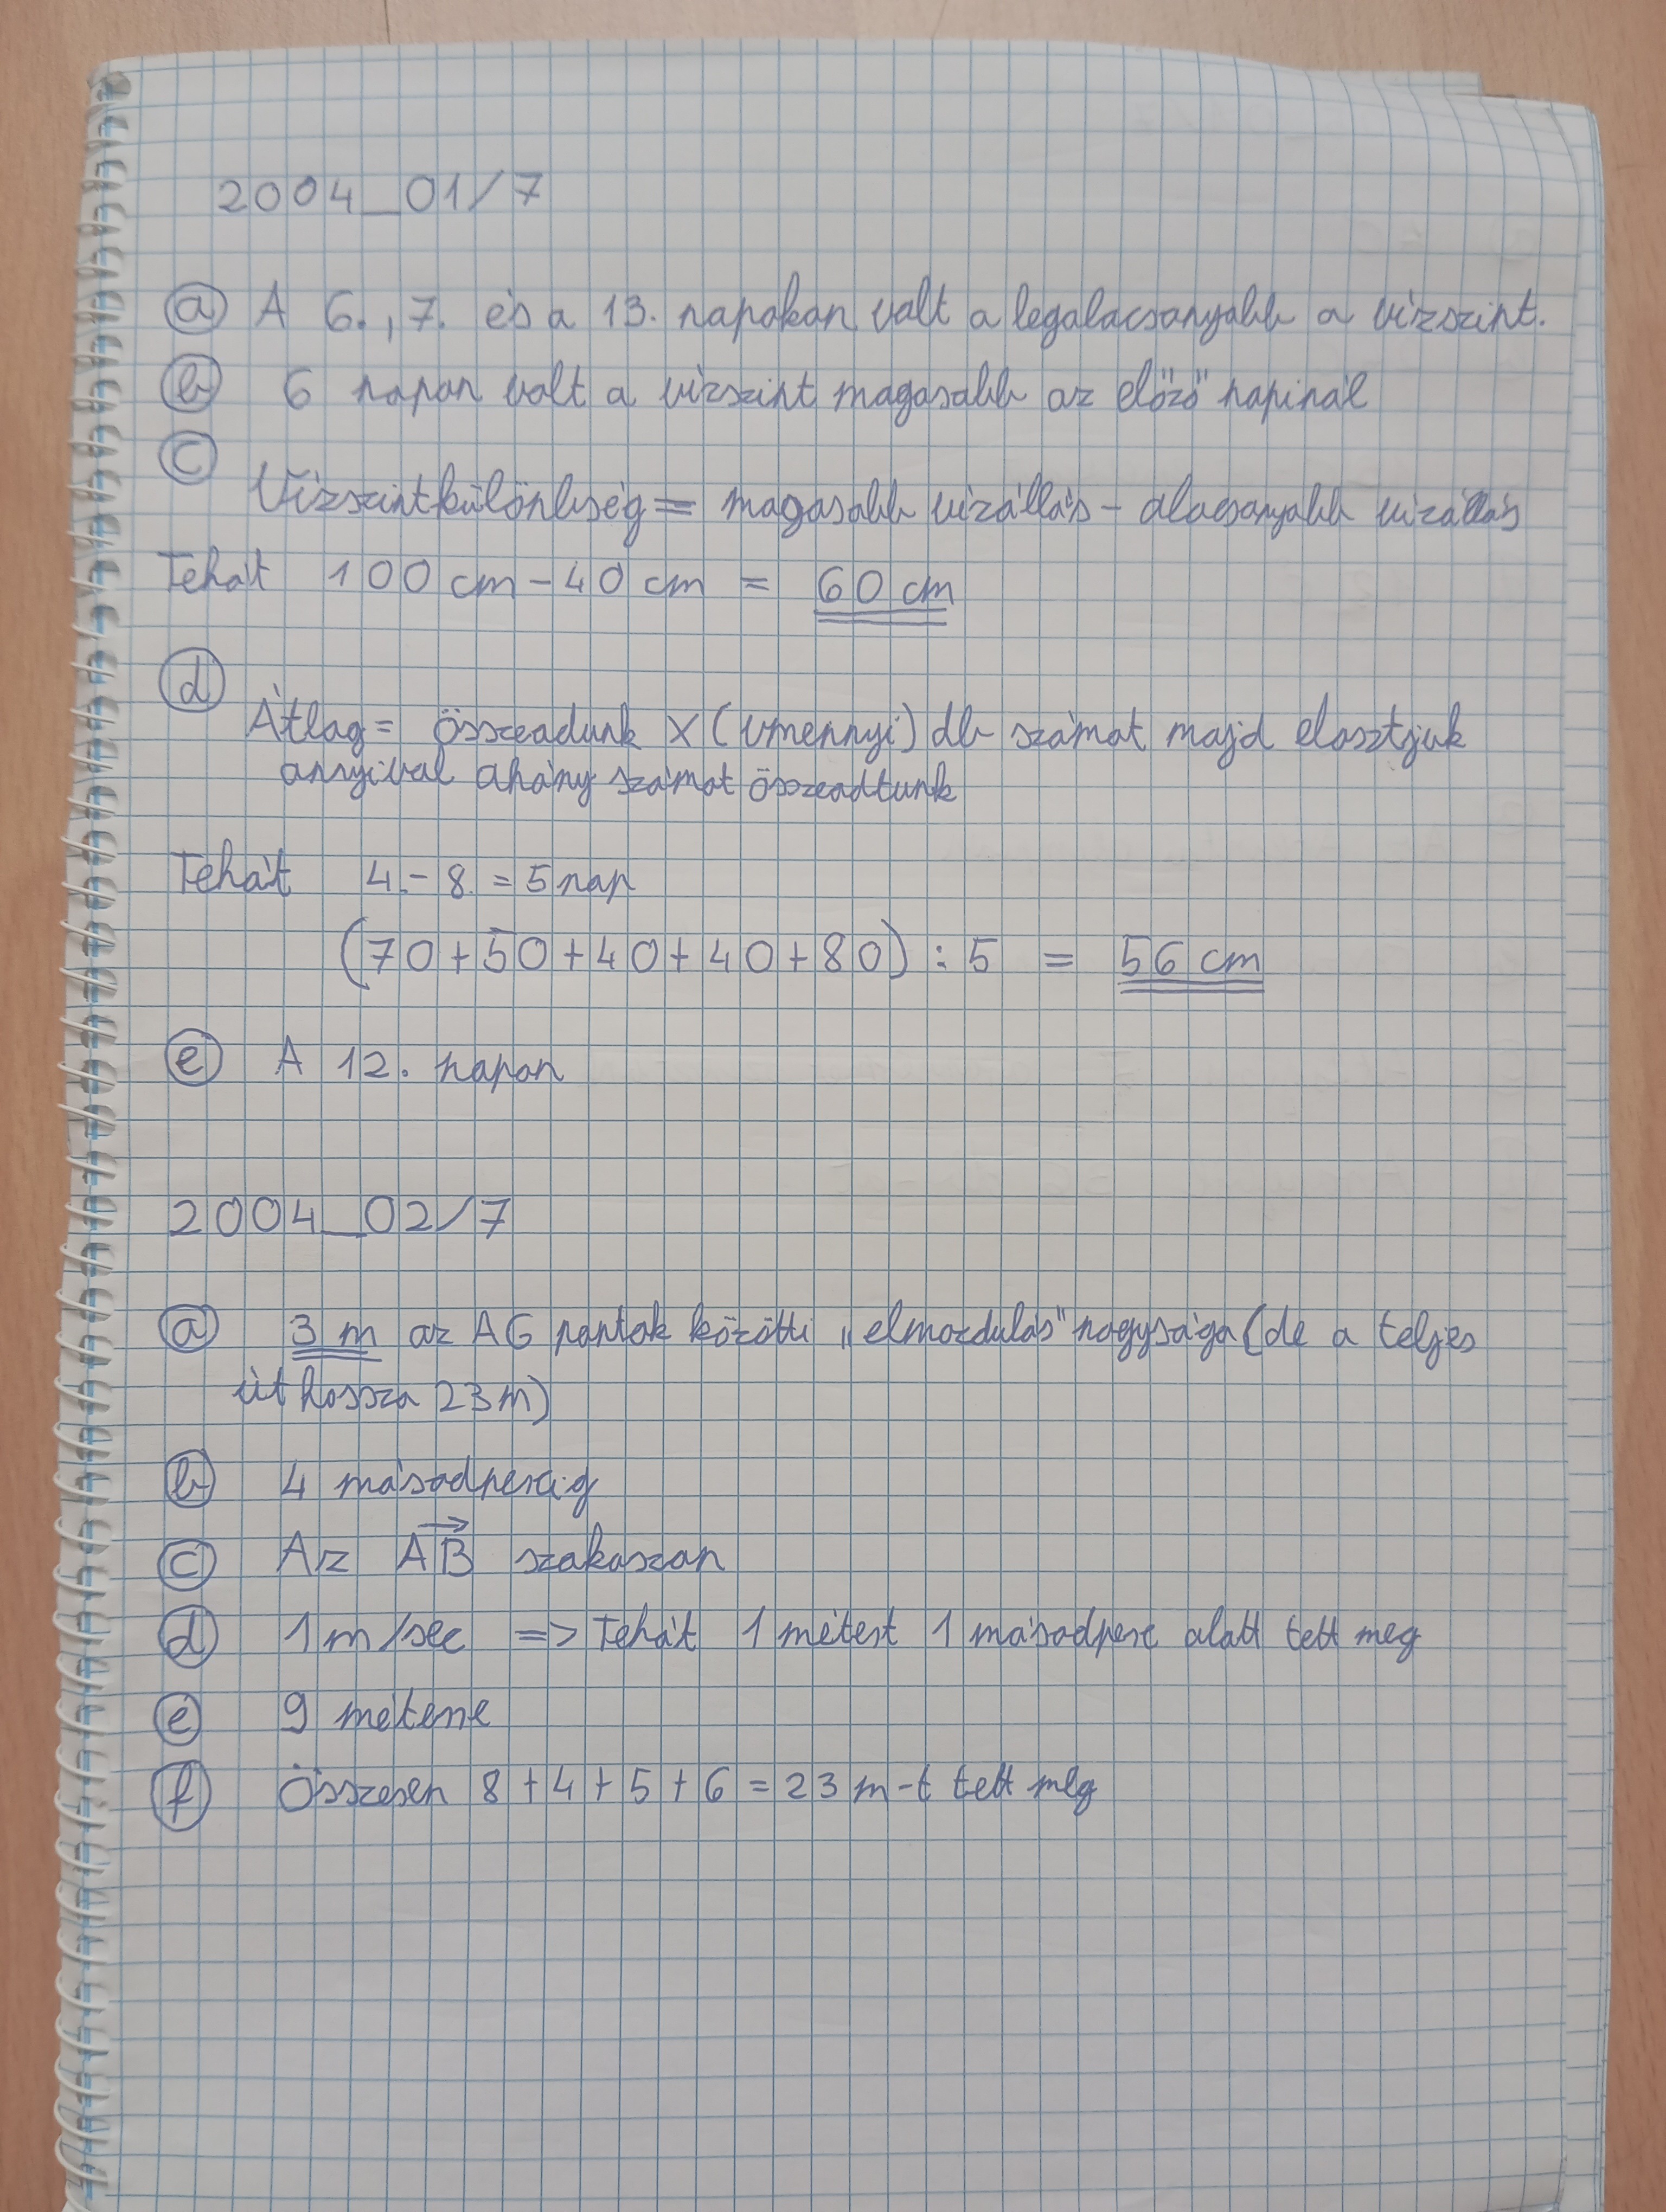 2004_01/7
a A 6., 7. és a 13. napokon volt a legalacsonyabb a vízszint.
b 6 napon volt a vízszint magasabb az előző napinál
c
Vízszintkülönbség = magasabb vízállás - alacsonyabb vízállás
Tehát 100 cm - 40 cm = 60 cm
d
Átlag = összeadunk X (vmennyi) db számot majd elosztjuk
annyival ahány számot összeadtunk
Tehát 4. - 8. = 5 nap
(70 + 50 + 40 + 40 + 80) : 5 = 56 cm
e A 12. napon
2004_02/7
a 3 m az AG pontok közötti „elmozdulás" nagysága (de a teljes
út hossza 23 m)
b 4 másodpercig
c Az AB szakaszon
d 1 m/sec => Tehát 1 métert 1 másodperc alatt tett meg
e 9 méterre
f Összesen 8 + 4 + 5 + 6 = 23 m-t tett meg